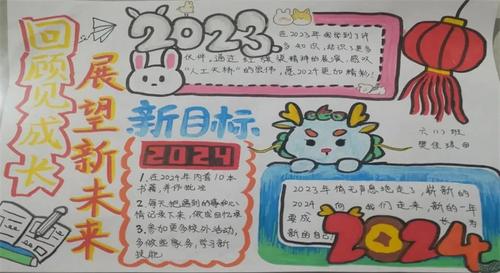 回顾见成长
展望新未来
2023.
在2023年我学到了许
多知识,结识了更多
伙伴,通过红旗渠精神的展演,感叹
"人工天桥"的宏伟,愿2024更加精彩!
六(1)班
新目标
2024
1.在2024年内看10本
书籍,并作批注
2.每天把遇到的事和心
情记录下来,做成回忆录
3.参加更多校外活动,
多做些家务,学习新
技能
2023年悄无声息地走了,崭新的
2024向我们走来,新的一年
要成
为新的自己!
2024